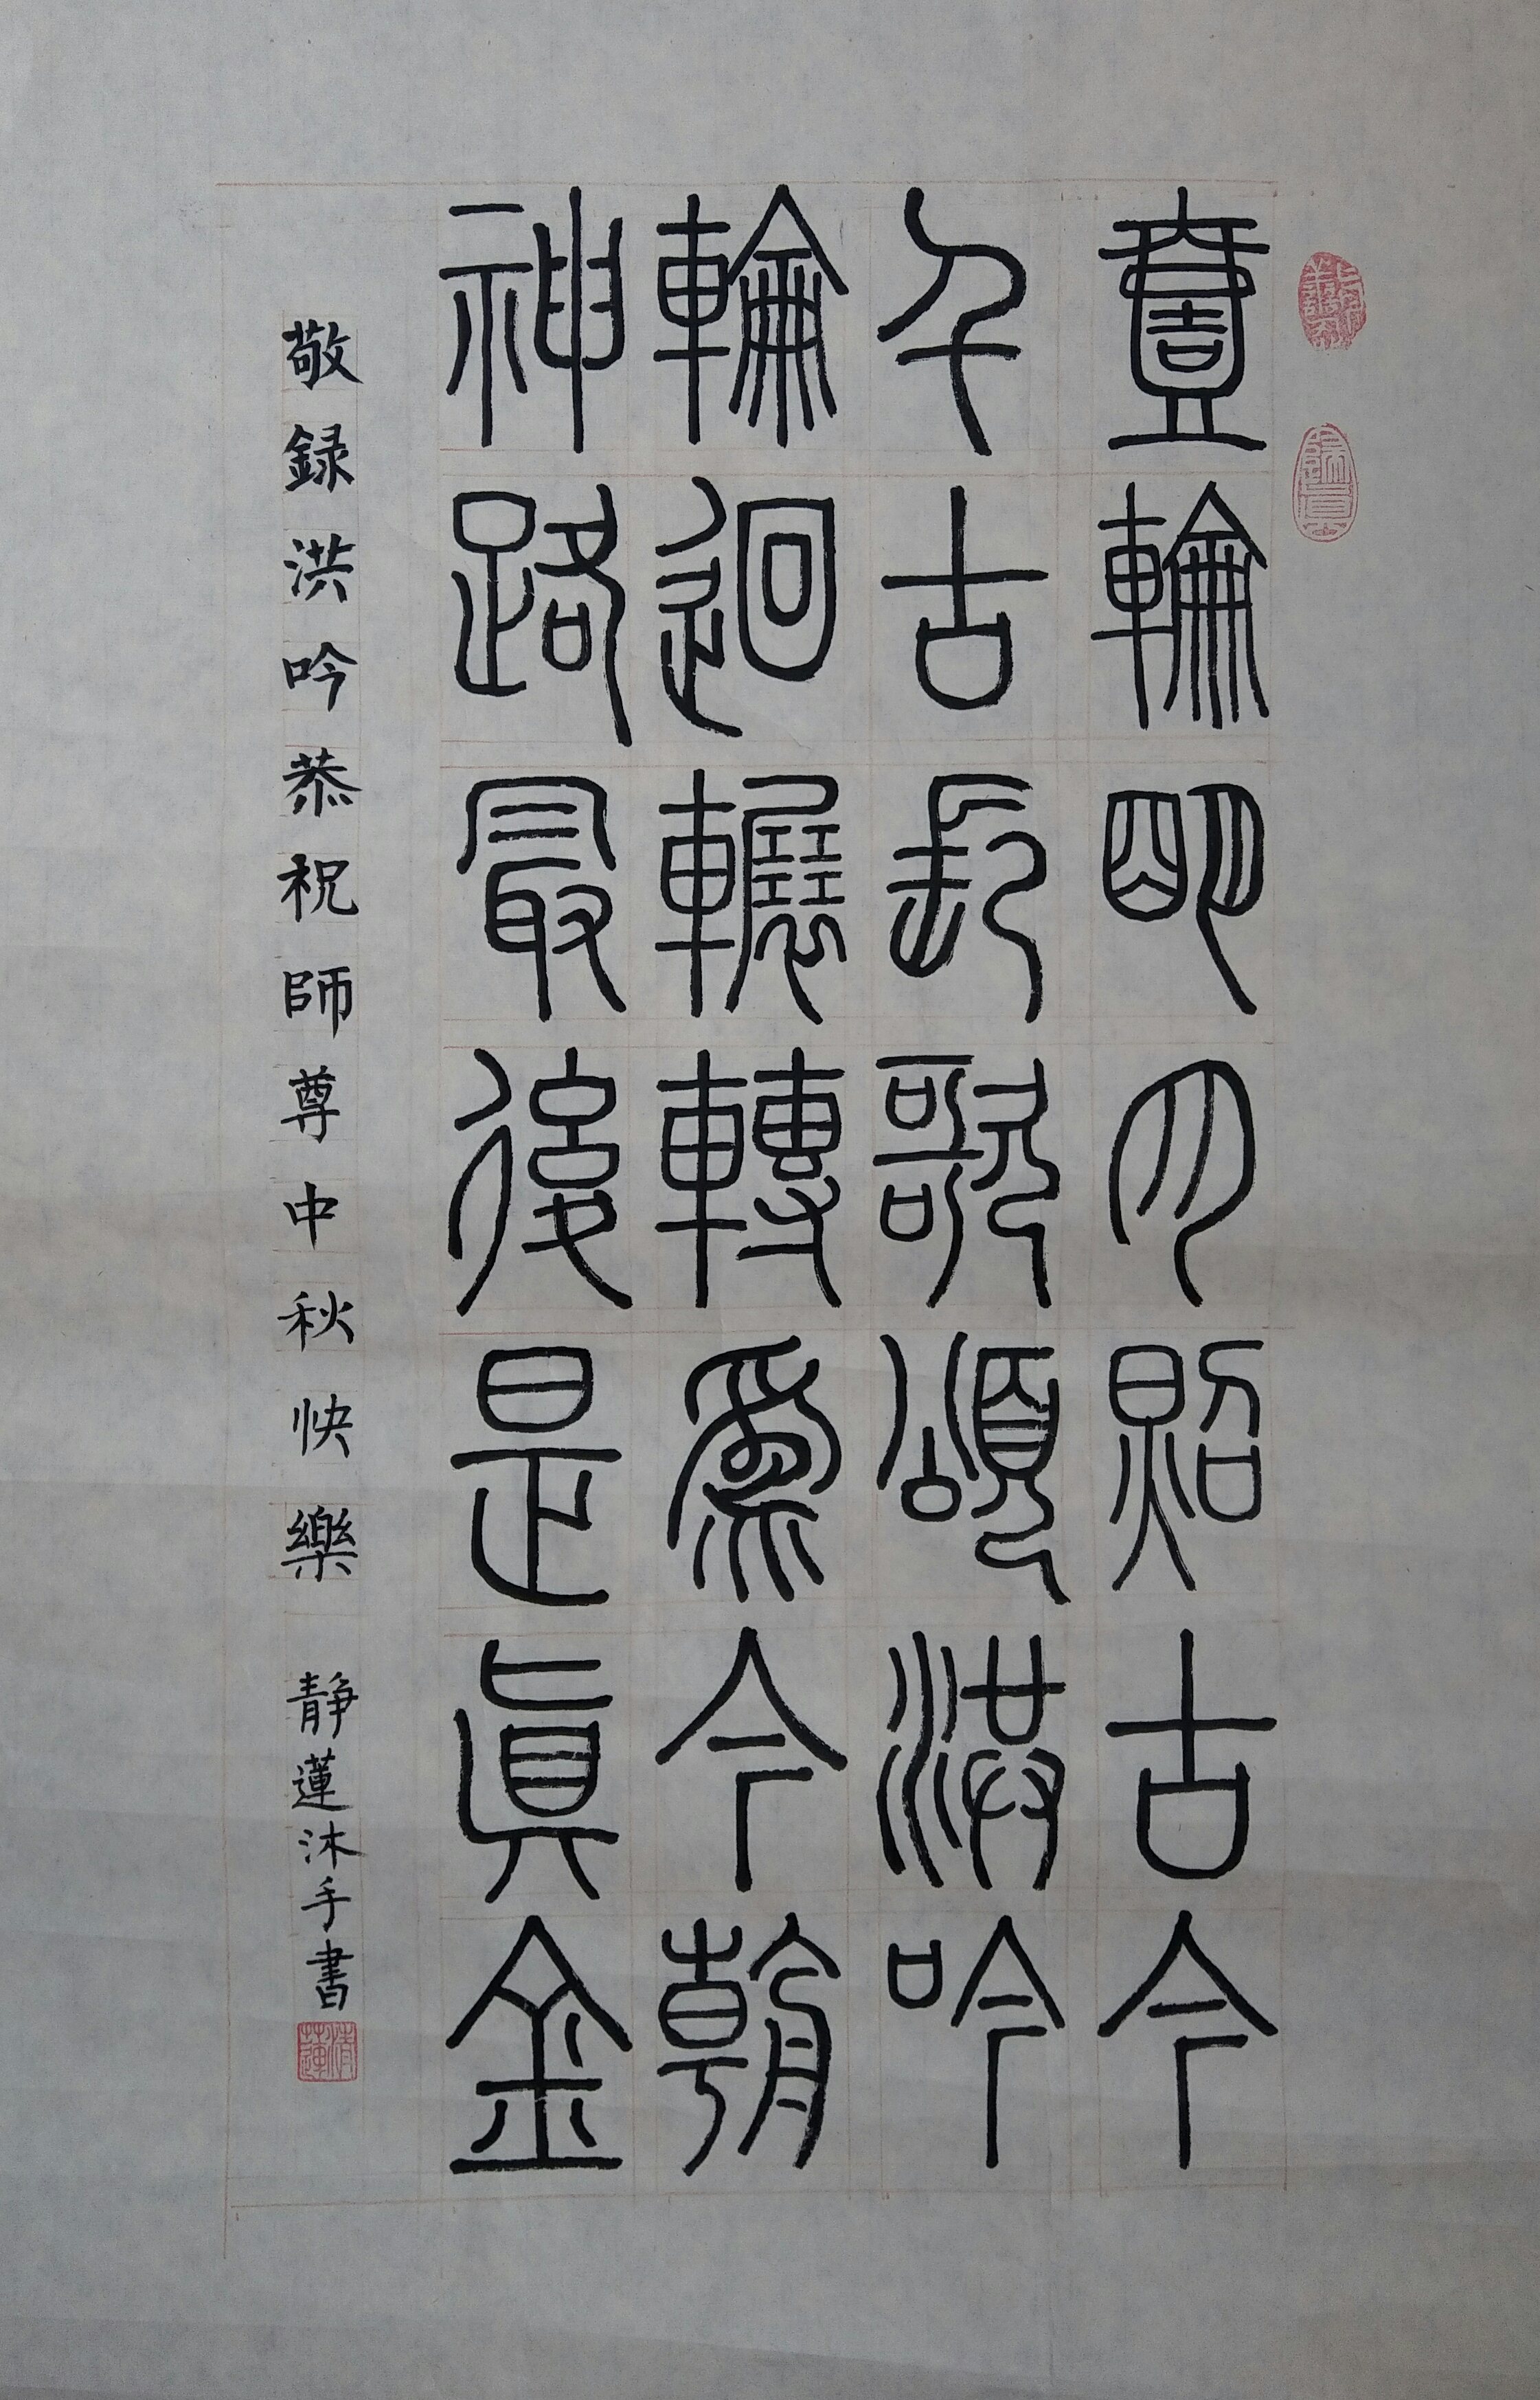 壹輪明月照古今
千古長歌頌洪吟
輪迴輾轉為今朝
神路最後是真金
敬録洪吟恭祝師尊中秋快樂
靜蓮沐手書